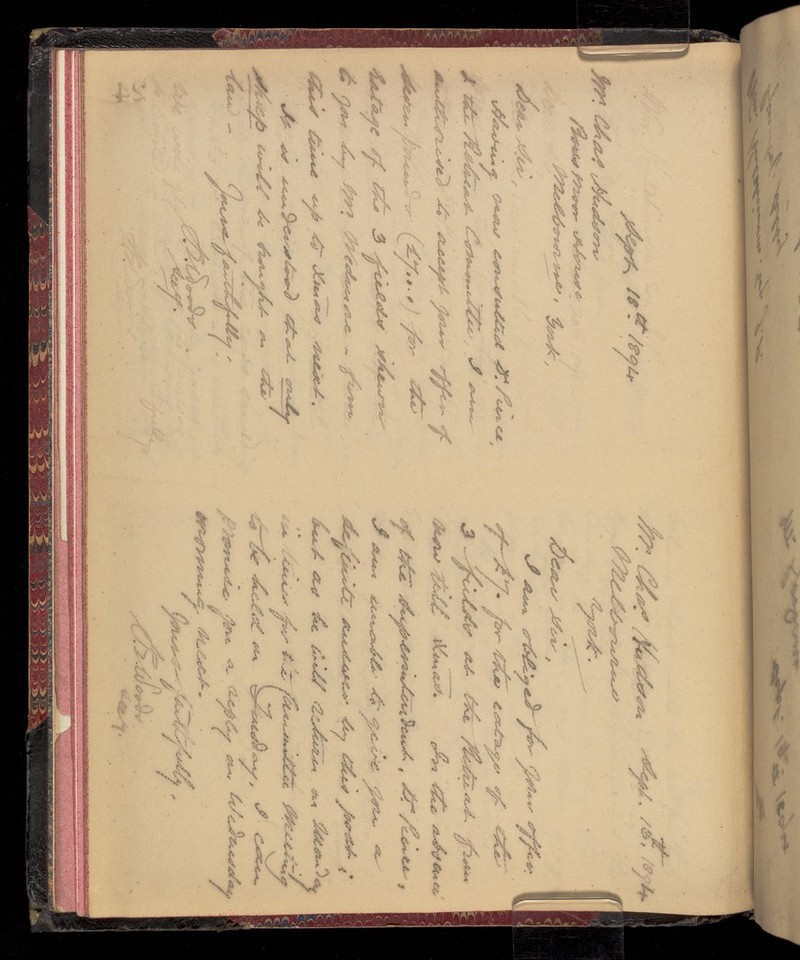 Mr. Chas Hudson Sept. 15th 1894
Melbourne
York.
Dear Sir,
I am obliged for your offer
of £7. for the eatage of the
3 fields at the Retreat from
now till Xmas. In the absence
of the Superintendent, Dr. Pierce,
I am unable to give you a
definite answer by this post;
but as he will return on Monday
in time for the Committee Meeting
to be held on Tuesday, I can
promise you a reply on Wednesday
morning next.
Yours faithfully.
Woods
Secy.
Sept. 18th 1894
Mr. Chas. Hudson
Moor House
Melbourne, York.
Dear Sir,
Having now consulted Dr. Pierce,
& the Retreat Committee, I am
authorised to accept your offer of
seven pounds (£7.,.) for the
eatage of the 3 fields shewn
to you by Mr. from
this time up to Xmas next.
It is understood that only
sheep will be brought on the
land -
Yours faithfully.
Woods
Secy.
34